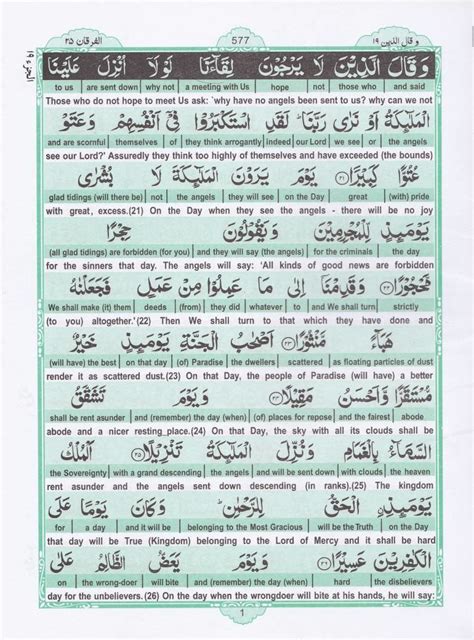 الفرقان ٢٥ 577 و قال الذين ١٩
الجزء ١٩
وَ قَالَ الَّذِيْنَ لَا يَرْجُوْنَ لِقَآءَنَا لَوْلَاۤ اُنْزِلَ عَلَيْنَا
to us are sent down why not a meeting with Us hope not those who and said
Those who do not hope to Meet Us ask: 'why have no angels been sent to us? why can we not
الْمَلٰٓئِكَةُ اَوْ نَرٰى رَبَّنَا ؕ لَقَدِ اسْتَكْبَرُوْا فِيْۤ اَنْفُسِهِمْ وَعَتَوْ
and are scornful themselves of they think arrogantly indeed our Lord we see or the angels
see our Lord?' Assuredly they think too highly of themselves and have exceeded (the bounds)
عُتُوًّا كَبِيْرًا ٢١ يَوْمَ يَرَوْنَ الْمَلٰٓئِكَةَ لَا بُشْرٰى
glad tidings (will there be) not the angels they will see on the Day great (with) pride
with great, excess.(21) On the Day when they see the angels - there will be no joy
يَوْمَئِذٍ لِّلْمُجْرِمِيْنَ وَ يَقُوْلُوْنَ حِجْرًا
(all glad tidings) are forbidden (for you) and they will say (the angels) for the criminals the day
for the sinners that day. The angels will say: 'All kinds of good news are forbidden
مَّحْجُوْرًا ٢٢ وَقَدِمْنَاۤ اِلٰى مَا عَمِلُوْا مِنْ عَمَلٍ فَجَعَلْنٰهُ
We shall make (it) them deeds (from) they did whatever to and We shall turn strictly
(to you) altogether.'(22) Then We shall turn to that which they have done and
هَبَآءً مَّنْثُوْرًا ٢٣ اَصْحٰبُ الْجَنَّةِ يَوْمَئِذٍ خَيْرٌ
(will have) the best on that day (of) Paradise the dwellers scattered as floating particles of dust
render it as scattered dust.(23) On that Day, the people of Paradise (will have) a better
مُّسْتَقَرًّا وَّاَحْسَنُ مَقِيْلًا ٢٤ وَيَوْمَ تَشَقَّقُ
shall be rent asunder and (remember) the day (when) (of) places for repose and the fairest abode
abode and a nicer resting_place.(24) On that Day, the sky with all its clouds shall be
السَّمَآءُ بِالْغَمَامِ وَنُزِّلَ الْمَلٰٓئِكَةُ تَنْزِيْلًا ٢٥ اَلْمُلْكُ
the Sovereignty with a grand descending the angels and will be sent down with clouds the heaven
rent asunder and the angels sent down descending (in ranks).(25) The kingdom
يَوْمَئِذِ اِ۟لْحَقُّ لِلرَّحْمٰنِ ؕ وَكَانَ يَوْمًا عَلَى
for a day and it will be belonging to the Most Gracious will be the Truth on the Day
that day will be True (Kingdom) belonging to the Lord of Mercy and it shall be hard
الْكٰفِرِيْنَ عَسِيْرًا ٢٦ وَيَوْمَ يَعَضُّ الظَّالِمُ عَلٰى
on the wrong-doer will bite and (remember) the day (when) hard the disbelievers
day for the unbelievers.(26) On the Day when the wrongdoer will bite at his hand and say
1